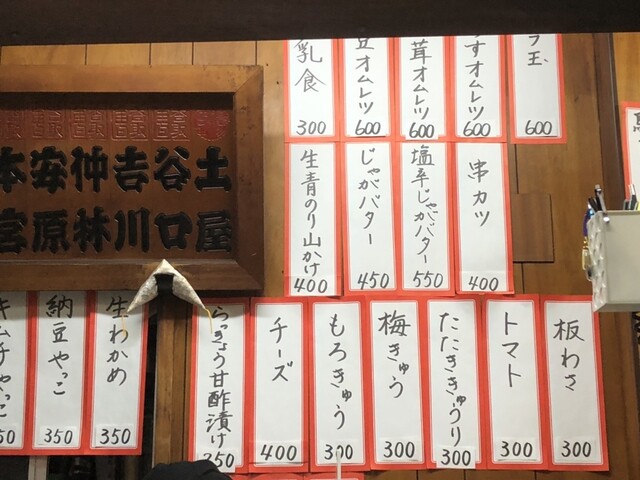 ラ玉
600
すオムレツ
600
茸オムレツ
600
豆オムレツ
600
乳食
300
串カツ
400
塩辛じゃがバター
550
じゃがバター
450
生青のり山かけ
400
土谷吉仲安本
屋口川林原宮
板わさ
300
トマト
300
たたききゅうり
300
梅きゅう
300
もろきゅう
300
チーズ
400
らっきょう甘酢漬け
350
生わかめ
350
納豆やっこ
350
キムチやっこ
50